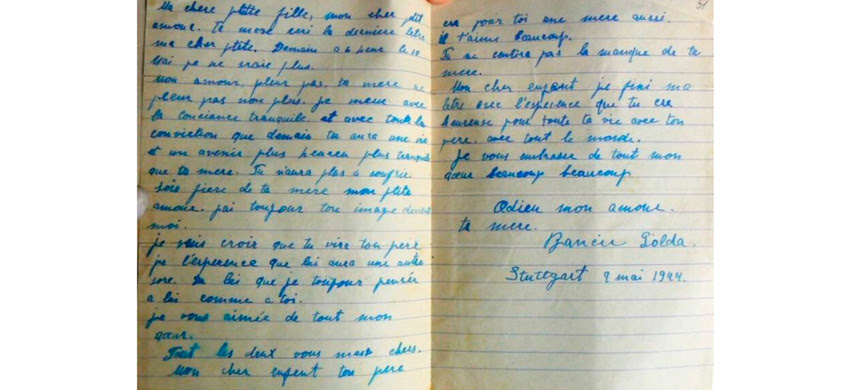 Ma chere ptite fille, mon cher ptit
amour. te mere ecri la derniere letre
ma cher ptite. Demain a 6 heur le 10
mai je ne sraie plus.
mon amour, pleur pas, ta mere ne
pleur pas non plus. je meur avec
la conciance tranquile et avec toute la
conviction que demain tu aura une vie
et un avenir plus heaceu plus tranquile
que ta mere. Tu n'aura plus a soufrire.
Sois fiere de ta mere mon ptite
amour. j'ai toujour tore image devent
moi.
je vais croir que tu vire ton pere
je l'experence que lui aura une autre
sore. Di lui que je toujour pensée
a lui comme a toi.
je vous aimée de tout mon
gœur.
Tout les deux vous m'ast chers.
Mon cher enfent ton pere
51
cra pour toi une mere aussi.
il t'aime beaucoup.
Tu ne sentira pas la manque de ta
mere.
Mon cher enfant je fini ma
letre avec l'esperence que tu cra
heureuse pour toute ta vie avec ton
pere, avec tout le monde.
je vous embrasse de tout mon
gœur beaucoup beaucoup
Adieu mon amour.
ta mere.
Bancic Golda.
Stuttgart 9 mai 1944.